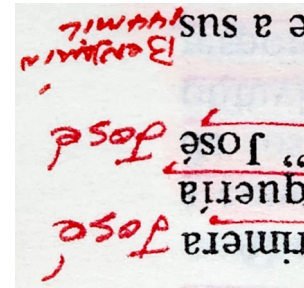 rimera José
quería
” José José
Benjamin
e a sus